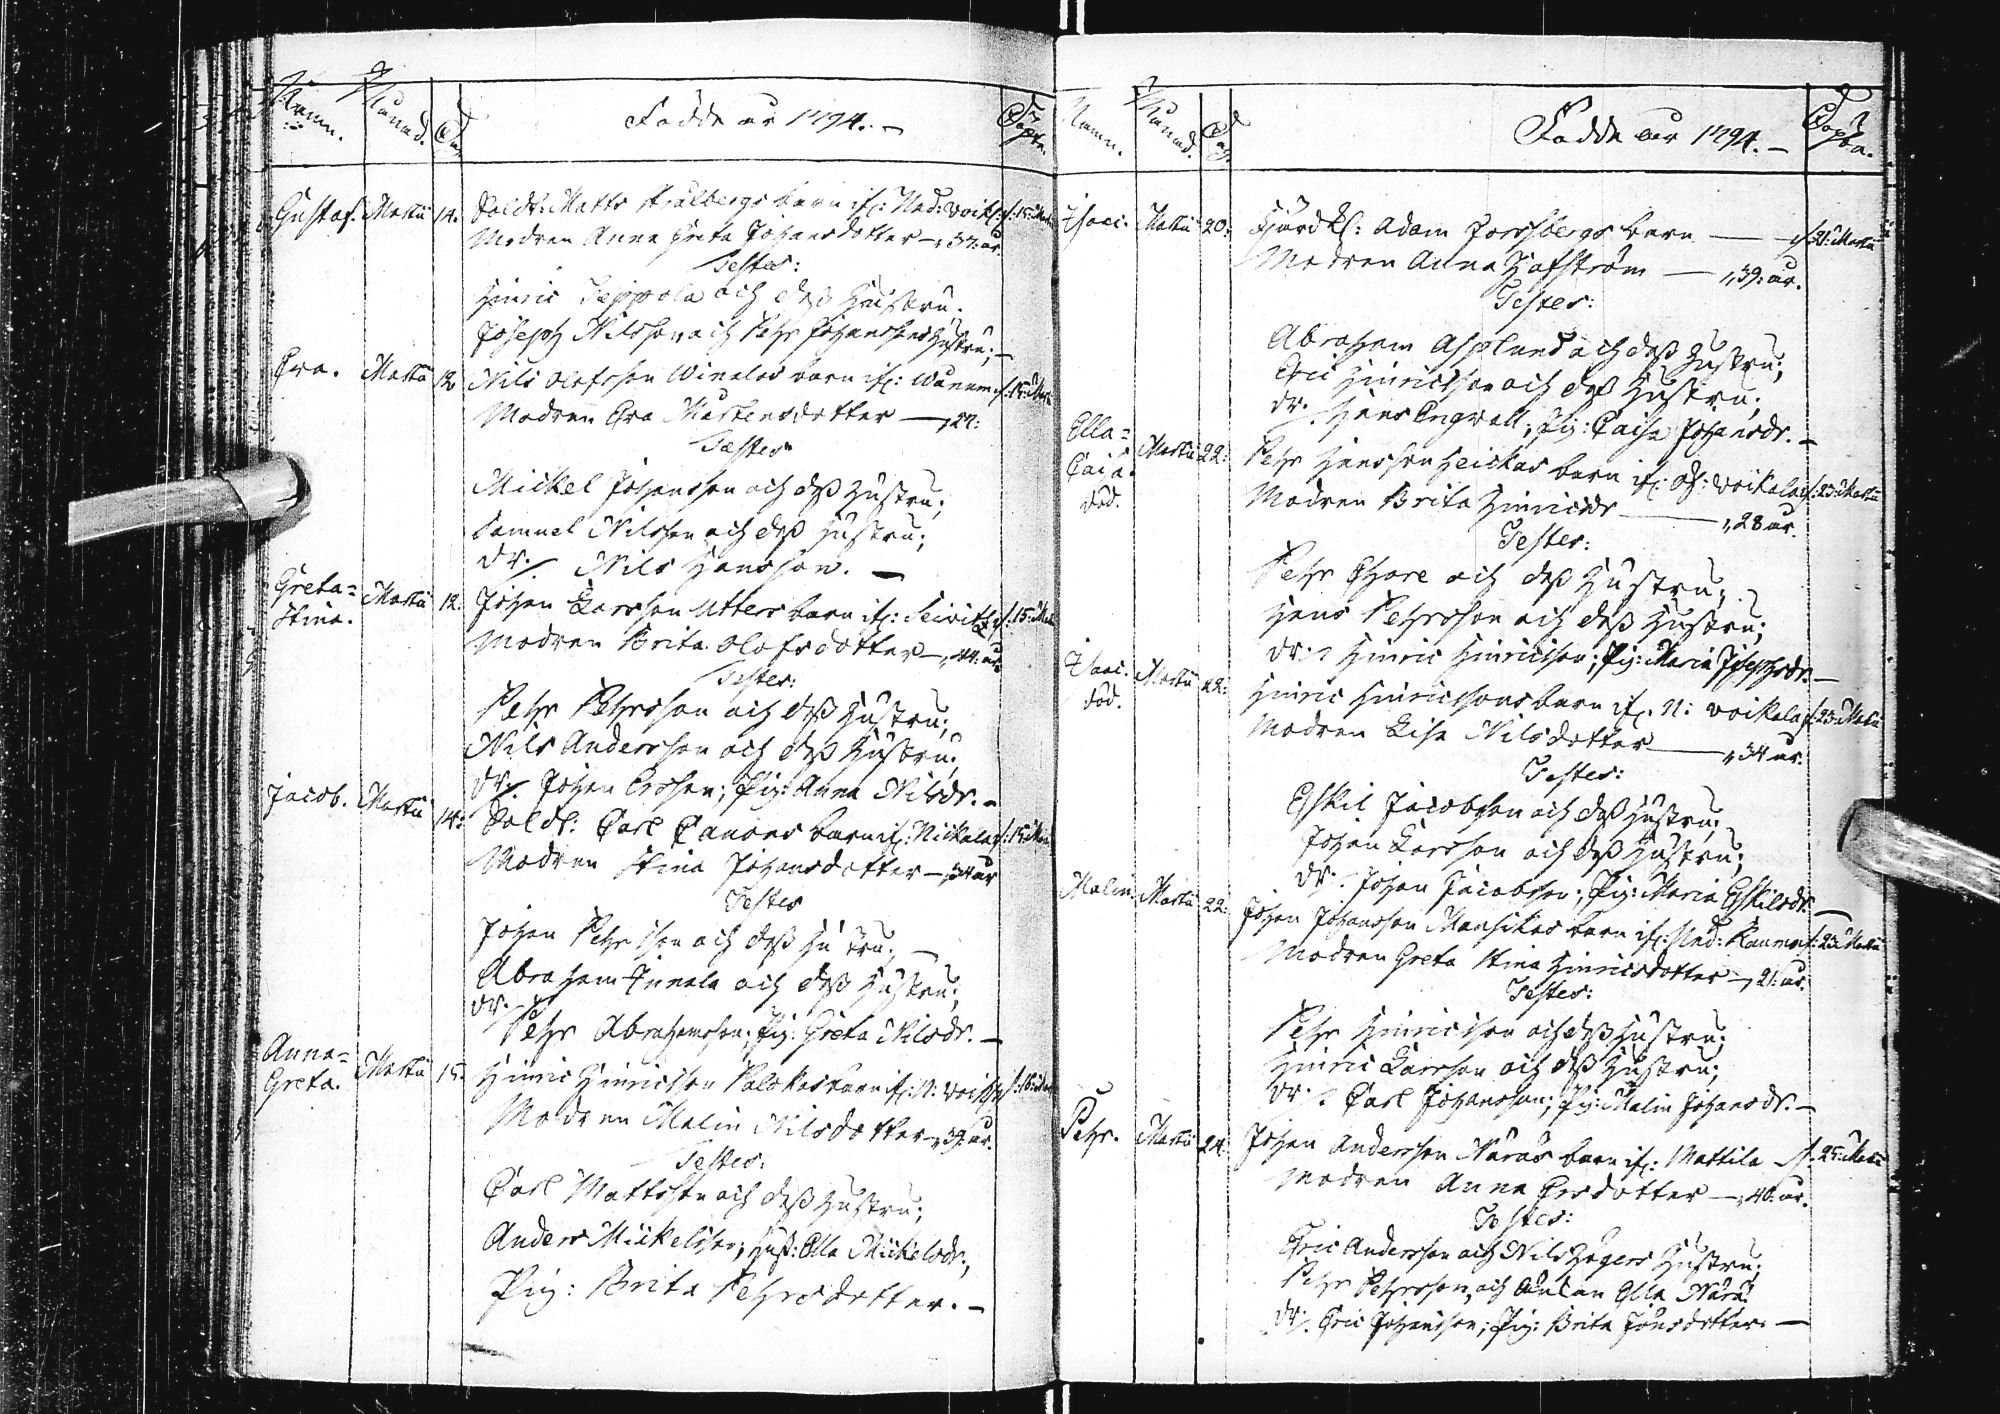 Namn. Månad. Dag. Födde år 1794. — Döpte.
Gustaf. Martii 14. Soldt: Matts Stålbergs barn if: Ned: Voik: d. 15: Mart
Modren Anna Greta Johansdotter —
Testes:
Hinric Seppola och dess Hustru;
Joseph Nilsson och Pehr Johanssons Hustru; —
Eva. Martii 12 Nils Olofsson Winelas barn if: d. 15: Mart
Modren Eva Mårtensdotter — 27:
Testes
Mickel Johansson och dess Hustru;
Samuel Nilsson och dess Hustru;
dr: Nils Hansson. —
Greta= Stina. Martii 12. Johan Larsson Utters barn if: d. 15: Mart
Modren Brita Olofsdotter — 44: år
Testes:
Pehr Pehrsson och dess Hustru;
Nils Andersson och dess Hustru;
dr: Johan Ersson; Pig: Anna Nilsdr. —
Jacob. Martii 14: Soldt: Carl Canons barn if: Nickala d. 15: Mart
Modren Stina Johansdotter — 34 år
Testes
Johan Pehrsson och dess Hustru; —
Abraham Innala och dess Hustru;
dr.
Pehr Abrahamsson; Pig: Greta Nilsdr. —
Anna= Greta. Martii 15. Hinric Hinricsson Palokas barn if: N: Voik d. 16: Mart
Modren Malin Nilsdotter — 39. år.
Testes:
Carl Mattsson och dess Hustru;
Anders Mickelsson; Hust: Ella Mickelsdr.,
Pig: Brita Pehrsdotter. —
Namn. Månad. Dag. Födde år 1794. — Döpta.
Isaac. Martii 20: Fjärdk: Adam Forssbergs barn — d. 21: Martii
Modren Anna Hofström — 39: år.
Testes:
Abraham Asplund och dess Hustru;
Eric Hinricsson och dess Hustru;
dr. Hans Engwall; Pig: Caisa Johansdr. —
Ella= Caisa. död. Martii 22: Pehr Hansson Heickas barn if: Öf: Voikala d. 23: Martii
Modren Brita Hinricsdr — 28 år.
Testes:
Pehr Thore och dess Hustru;
Hans Pehrsson och dess Hustru;
dr: Hinric Hinricsson; Pig: Maria Josephsdr. —
Isaac. död. Martii 22: Hinric Hinricssons barn if. N: Voikala d. 23. Martii
Modren Lisa Nilsdotter — 34 år.
Testes:
Eskil Jacobsson och dess Hustru;
Johan Larsson och dess Hustru;
dr: Johan Jacobsson; Pig: Maria Eskilsdr. —
Malin. Martii 22: Johan Johansson Mansikas barn if: Ned: Kauma d. 23: Martii
Modren Greta Stina Hinricsdotter — 21: år.
Testes:
Pehr Hinricsson och dess Hustru;
Hinric Larsson och dess Hustru;
dr: Carl Johansson; Pig: Malin Johansdr. —
Pehr. Martii 24. Johan Andersson Näräs barn if: Mattila d. 25: Martii
Modren Anna Ersdotter — 40: år.
Testes:
Eric Andersson och Nils Hagers Hustru;
Pehr Pehrsson, och Enkan Ella Närä
dr: Eric Johansson; Pig: Brita Jönsdotter. —